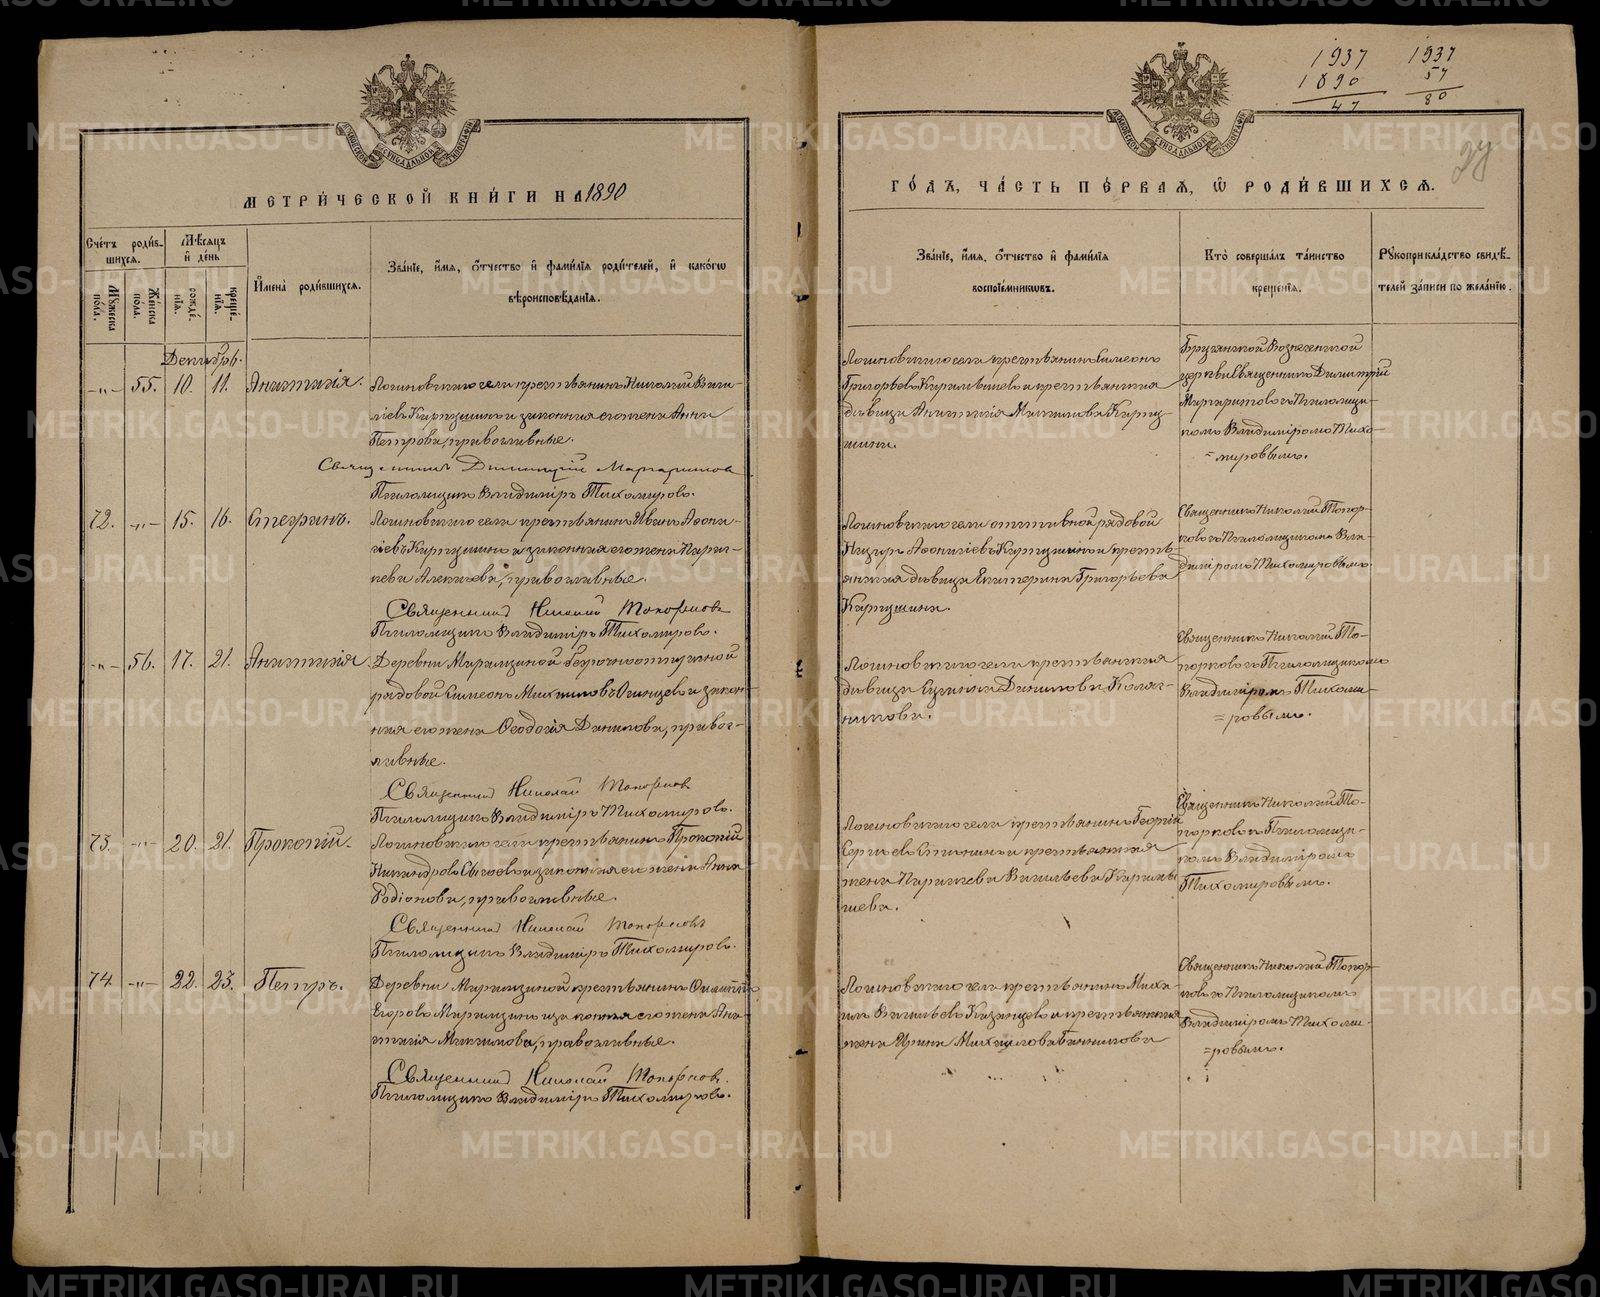 МОСКОВСКОЙ СѴНОДАЛЬНОЙ ТИПОГРАФІИ
МЕТРИ́ЧЕСКОЙ КНИ́ГИ НА 1890
Сче́тъ роди́в-
шихся.
Мꙋ́жеска по́ла.
Же́нска по́ла.
Мѣ́сяцъ и҆ де́нь
рожде́нїя.
креще́нїя.
И҆мена̀ роди́вшихся.
Зва́нїе, и҆́мя, ѻ҆́тчество и҆ фами́лїя роди́телей, и҆ како́гѡ
вѣроисповѣ́данїя.
Декабрь.
-„- 55. 10. 11. Анастасія.
Логиновскаго села крестьянинъ Николай Васи-
ліевъ Карпушинъ и законная его жена Анна
Петрова, православные.
Священникъ Димитрій Маргаритовъ
Псаломщикъ Владиміръ Тихомировъ.
72. -„- 15. 16. Стефанъ.
Логиновскаго села крестьянинъ Иванъ Аѳона-
сіевъ Карпушинъ и законная его жена Параск-
ева Алексѣева, православные.
Священникъ Николай Топорковъ
Псаломщикъ Владиміръ Тихомировъ.
-„- 56. 17. 21. Анастасія.
Деревни Марамзиной безсрочноотпускной
рядовой Симеонъ Михаиловъ и закон-
ная его жена Ѳеодосія Данилова, правос-
лавные.
Священникъ Николай Топорковъ
Псаломщикъ Владиміръ Тихомировъ.
73. -„- 20. 21. Прокопій.
Логиновскаго села крестьянинъ Прокопій
Никандровъ Сысоевъ и законная его жена Анна
Родіонова, православные.
Священникъ Николай Топорковъ
Псаломщикъ Владиміръ Тихомировъ.
74. -„- 22. 23. Петръ.
Деревни Марамзиной крестьянинъ
Егоровъ Марамзинъ и законная его жена Ана-
стасія Максимова, православные.
Священникъ Николай Топорковъ.
Псаломщикъ Владиміръ Тихомировъ.
1937
1890
47
1937
57
80
МОСКОВСКОЙ СѴНОДАЛЬНОЙ ТИПОГРАФІИ
ГО́ДЪ, ЧА́СТЬ ПЕ́РВАЯ, Ѡ҆ РОДИ́ВШИХСЯ.
Зва́нїе, и҆́мя, ѻ҆́тчество и҆ фами́лїя
воспрїе́мникѡвъ.
Кто̀ соверша́лъ та́инство
креще́нїя.
Рꙋкоприкла́дство свидѣ́-
телей за́писи по жела́нїю.
Логиновскаго села крестьянинъ Симеонъ
Григорьевъ и крестьянская
дѣвица Анастасія Максимова Карпу-
шина.
Бруснянской Вознесенской
церкви Священникъ Димитрій
Маргаритовъ съ Псаломщи-
комъ Владиміромъ Тихо-
=мировымъ.
Логиновскаго села отставной рядовой
Назаръ Аѳонасіевъ Карпушинъ и кресть-
янская дѣвица Екатерина Григорьева
Карпушина.
Священникъ Николай Топор-
ковъ съ Псаломщикомъ Вла-
диміромъ Тихомировымъ.
Логиновскаго села крестьянская
дѣвица Данилова Коляс-
никова.
Священникъ Николай То-
порковъ съ Псаломщикомъ
Владиміромъ Тихоми-
=ровымъ.
Логиновскаго села крестьянинъ Георгій
Сергѣевъ и крестьянская
жена Параскева Васильева
шева.
Священникъ Николай То-
порковъ съ Псаломщи-
комъ Владиміромъ
Тихомировымъ.
Логиновскаго села крестьянинъ Миха-
илъ Васильевъ Казанцевъ и крестьянская
жена Ирина Михаилова Банникова
Священникъ Николай Топор-
ковъ съ Псаломщикомъ
Владиміромъ Тихоми-
=ровымъ.
METRIKI.GASO-URAL.RU